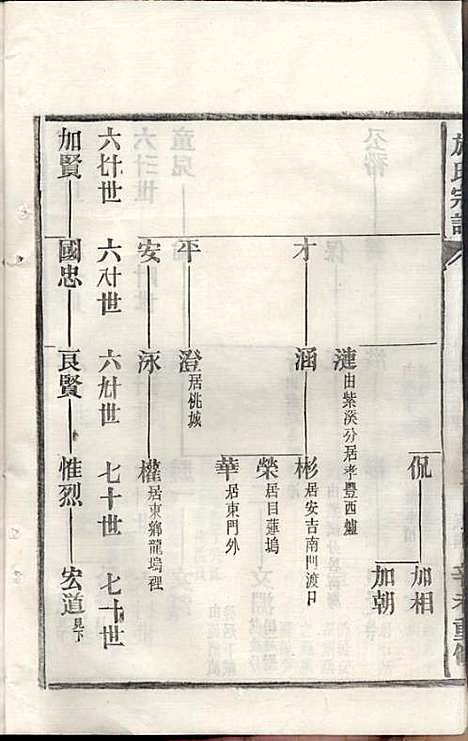 施氏宗譜
辛未重修
侃 加相
加朝
漣 由紫溪分居孝豐西爐
才 涵 彬 居安吉南門渡口
榮 居目蓮塢
華 居東門外
平 澄 居桃城
安 泳 權 居東鄉龍塢裡
六十七世 六十八世 六十九世 七十世 七十一世
加賢 國忠 良賢 惟烈 宏道 見下